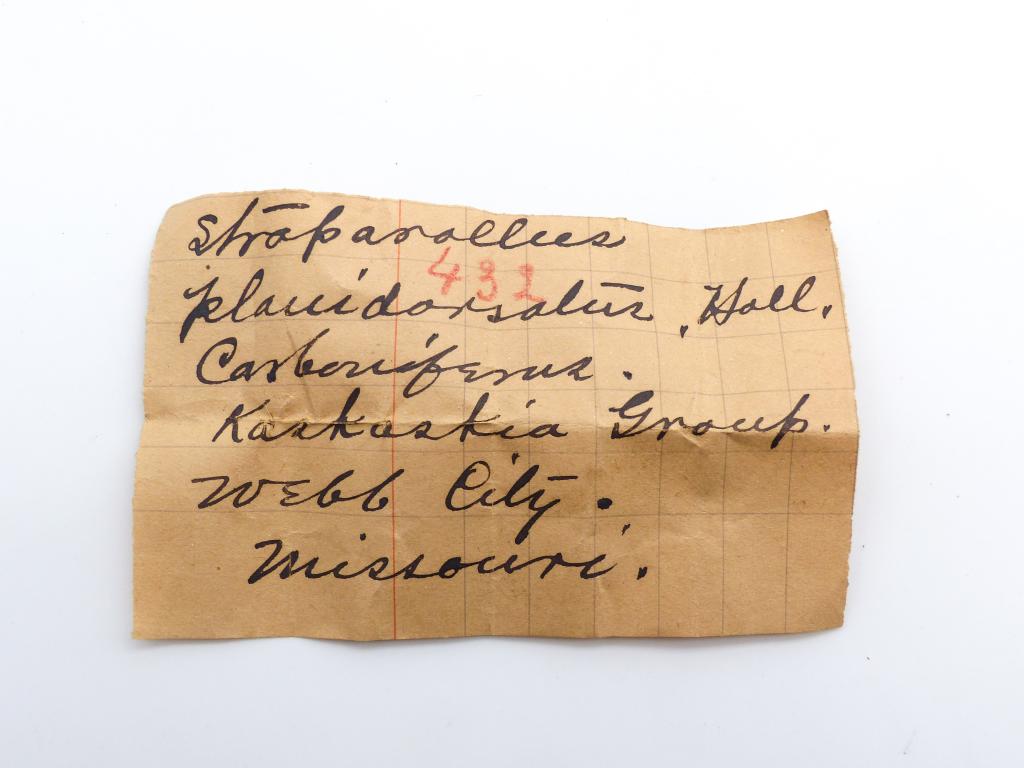 Straparollus
432
planidorsatus, Hall.
Carboniferus.
Kaskaskia Group.
Webb City.
Missouri.